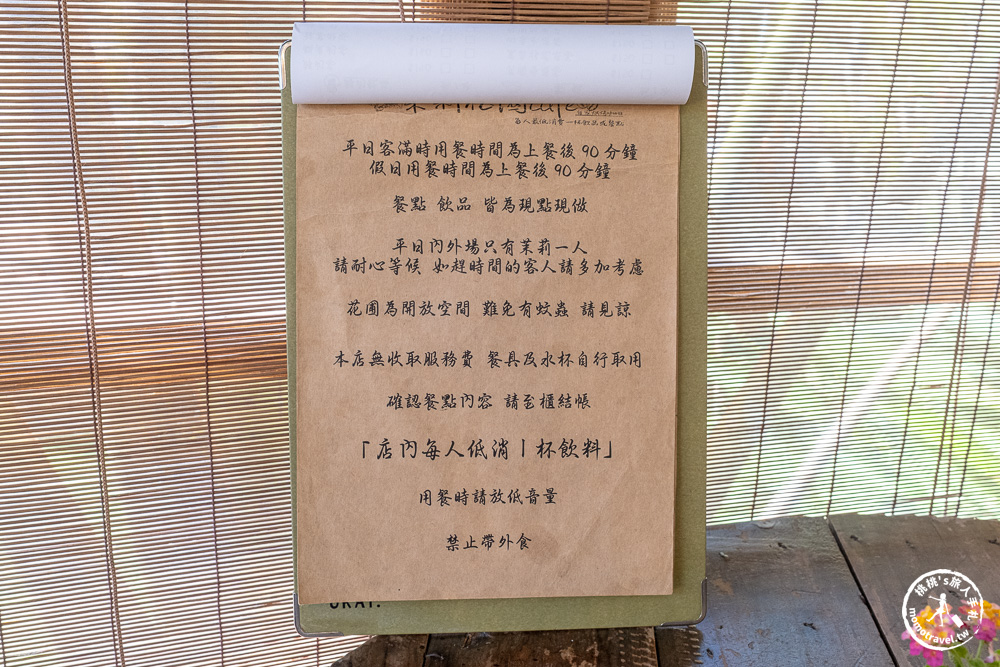 每人最低消費一杯飲品或餐點
平日客滿時用餐時間為上餐後 90 分鐘
假日用餐時間為上餐後 90 分鐘
餐點 飲品 皆為現點現做
平日內外場只有茉莉一人
請耐心等候 如趕時間的客人請多加考慮
花圃為開放空間 難免有蚊蟲 請見諒
本店無收取服務費 餐具及水杯自行取用
確認餐點內容 請至櫃結帳
「店內每人低消1杯飲料」
用餐時請放低音量
禁止帶外食
OKAY.
桃桃's旅人手札
momotravel.tw